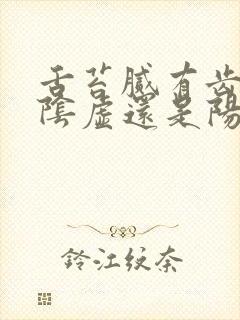 舌苔腻有齿
陰虛還是陽
鈴江紋奈